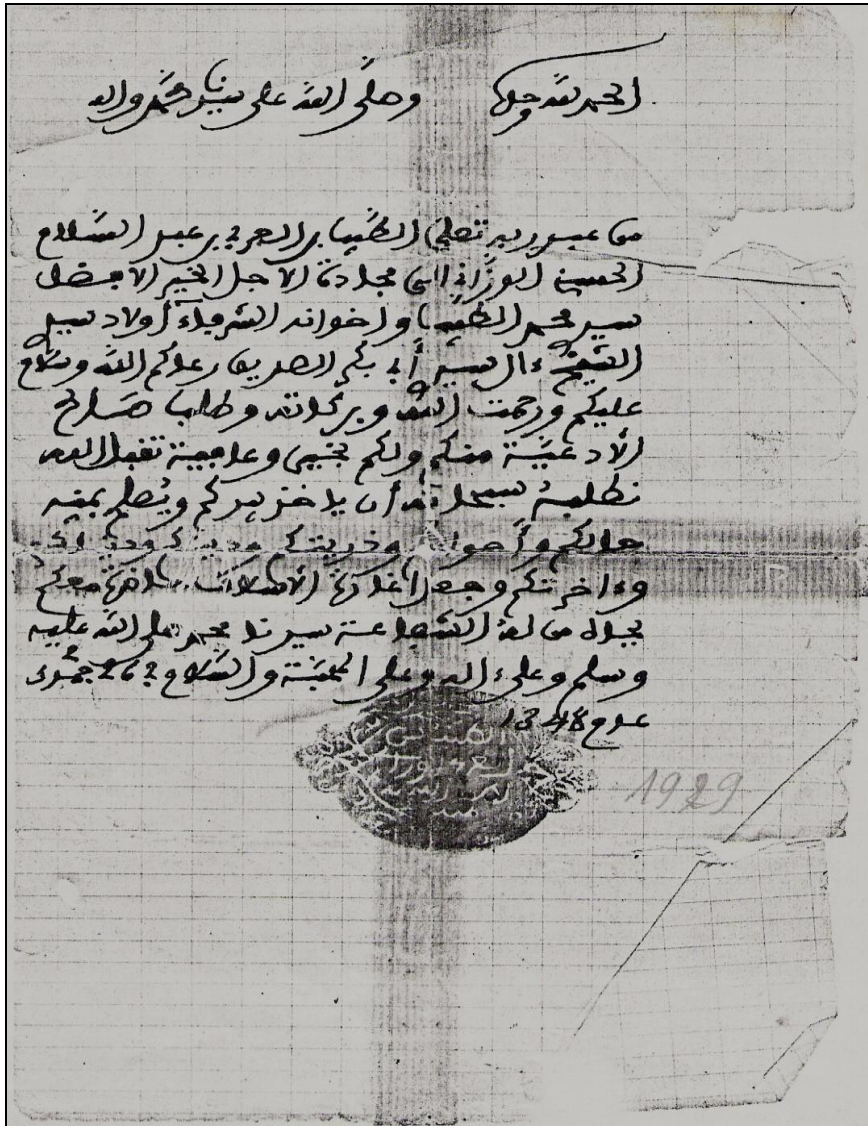 الحمد لله وحده وصلى الله على سيدنا محمد وآله
من عبد ربه تعلى الطيب بن العربي بن عبد السلام
الحسني الوزاني إلى مجادة الأجل الخير الأفضل
سيد محمد الطيب وإخوانه الشرفاء أولاد سيد
الشيخ ءال سيد أبي بكر الصديق رعاكم الله وسلام
عليكم ورحمت الله وبركاته وطلب صالح
الأدعية منكم ولكم بخير وعافية تقبل الله
نطلبه سبحانه أن ياخذ بيدكم ويصلح بمنه
حالكم وأحوالكم وذريتكم ودينكم ودنياكم
وءاخرتكم وجعل
بجاه من له الشفاعة سيدنا محمد صلى الله عليه
وسلم وعلى ءاله وعلى المحبة والسلام في 26 جمدى
عام 1348
1929